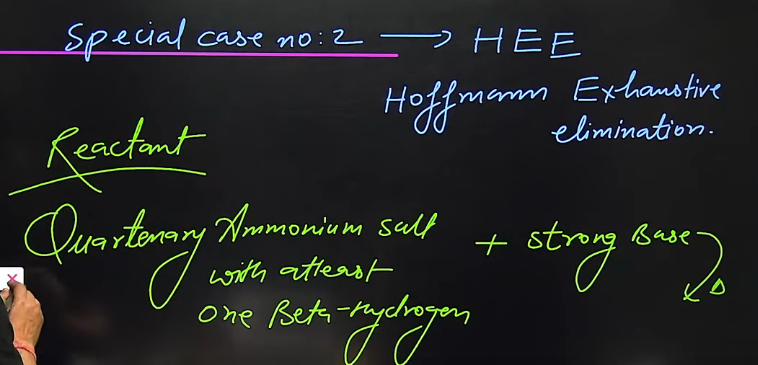 Special case no:2 → HEE
Hoffmann Exhaustive
elimination.
Reactant
Quartenary Ammonium salt + strong Base
with atleast
one Beta-hydrogen
Δ